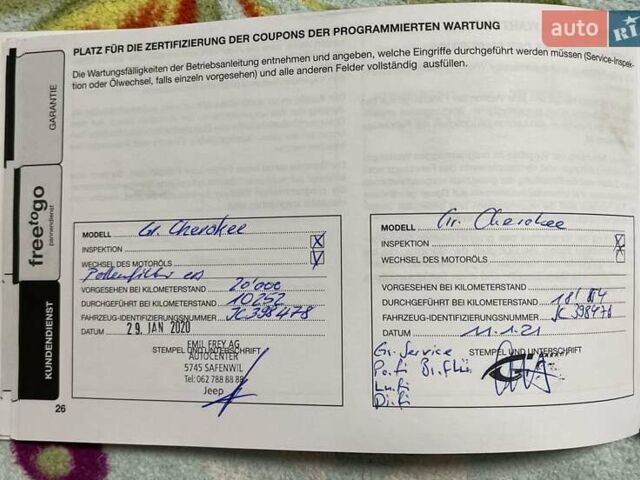 auto RIA
PLATZ FÜR DIE ZERTIFIZIERUNG DER COUPONS DER PROGRAMMIERTEN WARTUNG
Die Wartungsfälligkeiten der Betriebsanleitung entnehmen und angeben, welche Eingriffe durchgeführt werden müssen (Service-Inspek-
tion oder Ölwechsel, falls einzeln vorgesehen) und alle anderen Felder vollständig ausfüllen.
GARANTIE
freetogo
pannendienst
KUNDENDIENST
MODELL Gr. Cherokee
INSPEKTION X
WECHSEL DES MOTORÖLS
Pollenfilter ers
VORGESEHEN BEI KILOMETERSTAND 20'000
DURCHGEFÜHRT BEI KILOMETERSTAND 10252
FAHRZEUG-IDENTIFIZIERUNGSNUMMER JC398478
DATUM 29. JAN 2020
STEMPEL UND UNTERSCHRIFT
EMIL FREY AG
AUTOCENTER
5745 SAFENWIL
Tel: 062 788 88 88
Jeep
26
MODELL Gr. Cherokee
INSPEKTION X
WECHSEL DES MOTORÖLS
VORGESEHEN BEI KILOMETERSTAND
DURCHGEFÜHRT BEI KILOMETERSTAND
FAHRZEUG-IDENTIFIZIERUNGSNUMMER JC398478
DATUM 11.1.21
STEMPEL UND UNTERSCHRIFT
Gr. Service
Po.fi
Lu.fi